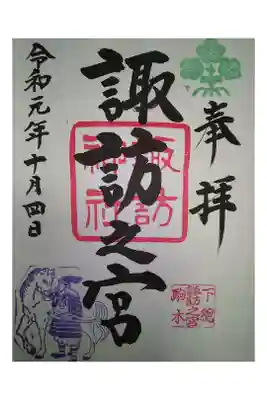 奉拝
諏訪之宮
諏訪
神社
下総
諏訪之宮
駒木
令和元年十月四日